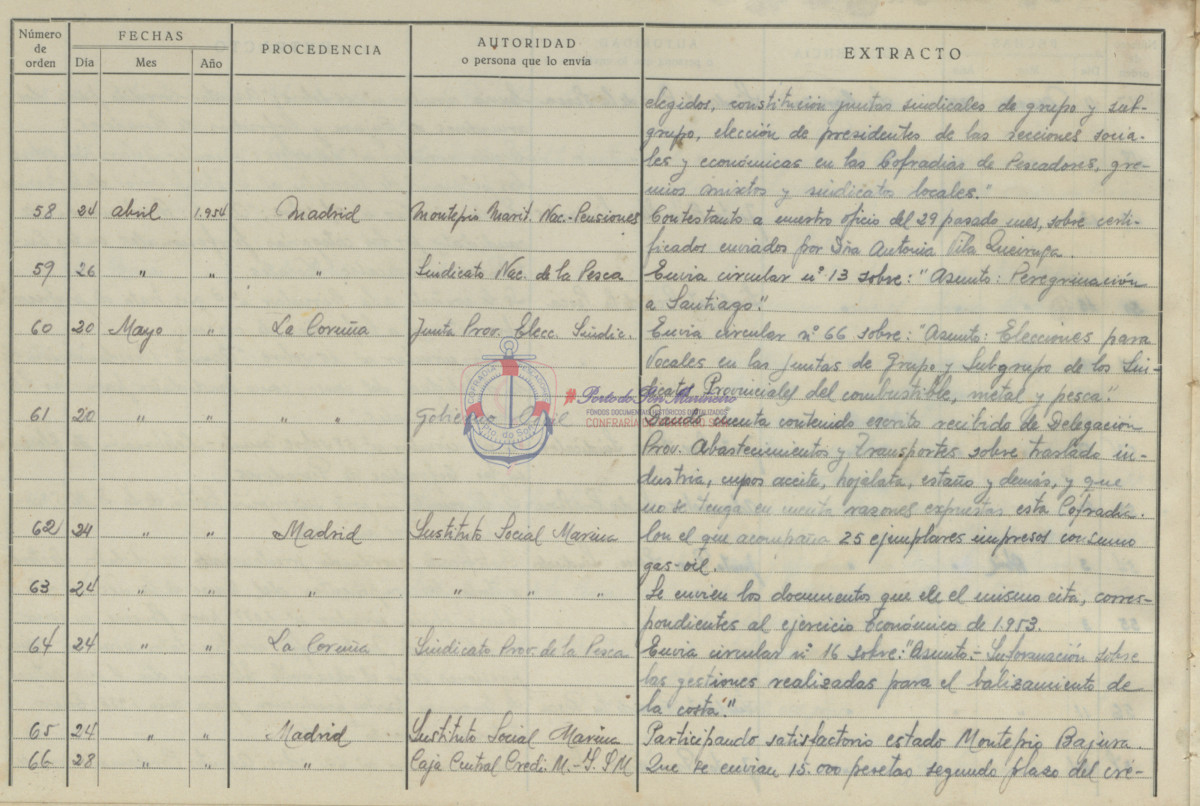 Número de orden FECHAS PROCEDENCIA AUTORIDAD o persona que lo envía EXTRACTO
Dia Mes Año
elegidos, constitución juntas sindicales de grupo y sub-
grupo, elección de presidentes de las secciones socia-
les y económicas en las Cofradias de Pescadores, gre-
mios mixtos y sindicatos locales."
58 24 abril 1.954 Madrid Montepio Marit. Nac.-Pensiones Contestanto a nuestro oficio del 29 pasado mes, sobre certi-
ficados enviados por Dña Antonia Vila Queiruga.
59 26 " " " Sindicato Nac. de la Pesca Envia circular nº 13 sobre: "Asunto: Peregrinación
a Santiago".
60 20 Mayo " La Coruña Junta Prov. Elecc. Sindic. Envia circular nº 66 sobre: "Asunto: Elecciones para
Vocales en las Juntas de Grupo y Subgrupo de los Sin-
dicatos Provinciales del combustible, metal y pesca".
61 20 " " " " Gobierno Civil Dando cuenta contenido escrito recibido de Delegacion
Prov. Abastecimientos y Transportes sobre traslado in-
dustria, cupos aceite, hojalata, estaño y demás, y que
no se tenga en cuenta razones expuestas esta Cofradía.
62 24 " " Madrid Instituto Social Marina Con el que acompaña 25 ejemplares impresos consumo
gas-oil.
63 24 " " " " " " Se envien los documentos que en el mismo cita, corres-
pondientes al ejercicio Económico de 1.953.
64 24 " " La Coruña Sindicato Prov. de la Pesca Envia circular nº 16 sobre: "Asunto:- Información sobre
las gestiones realizadas para el balizamiento de
la costa".
65 24 " " Madrid Instituto Social Marina Participando satisfactorio estado Montepio Bajura.
66 28 " " " Caja Central Credi. M.- Y. P M. Que se envian 15.000 pesetas segundo plazo del cré-
#PortodoSon Marineiro
FONDOS DOCUMENTAIS HISTÓRICOS DIXITALIZADOS
CONFRARÍA